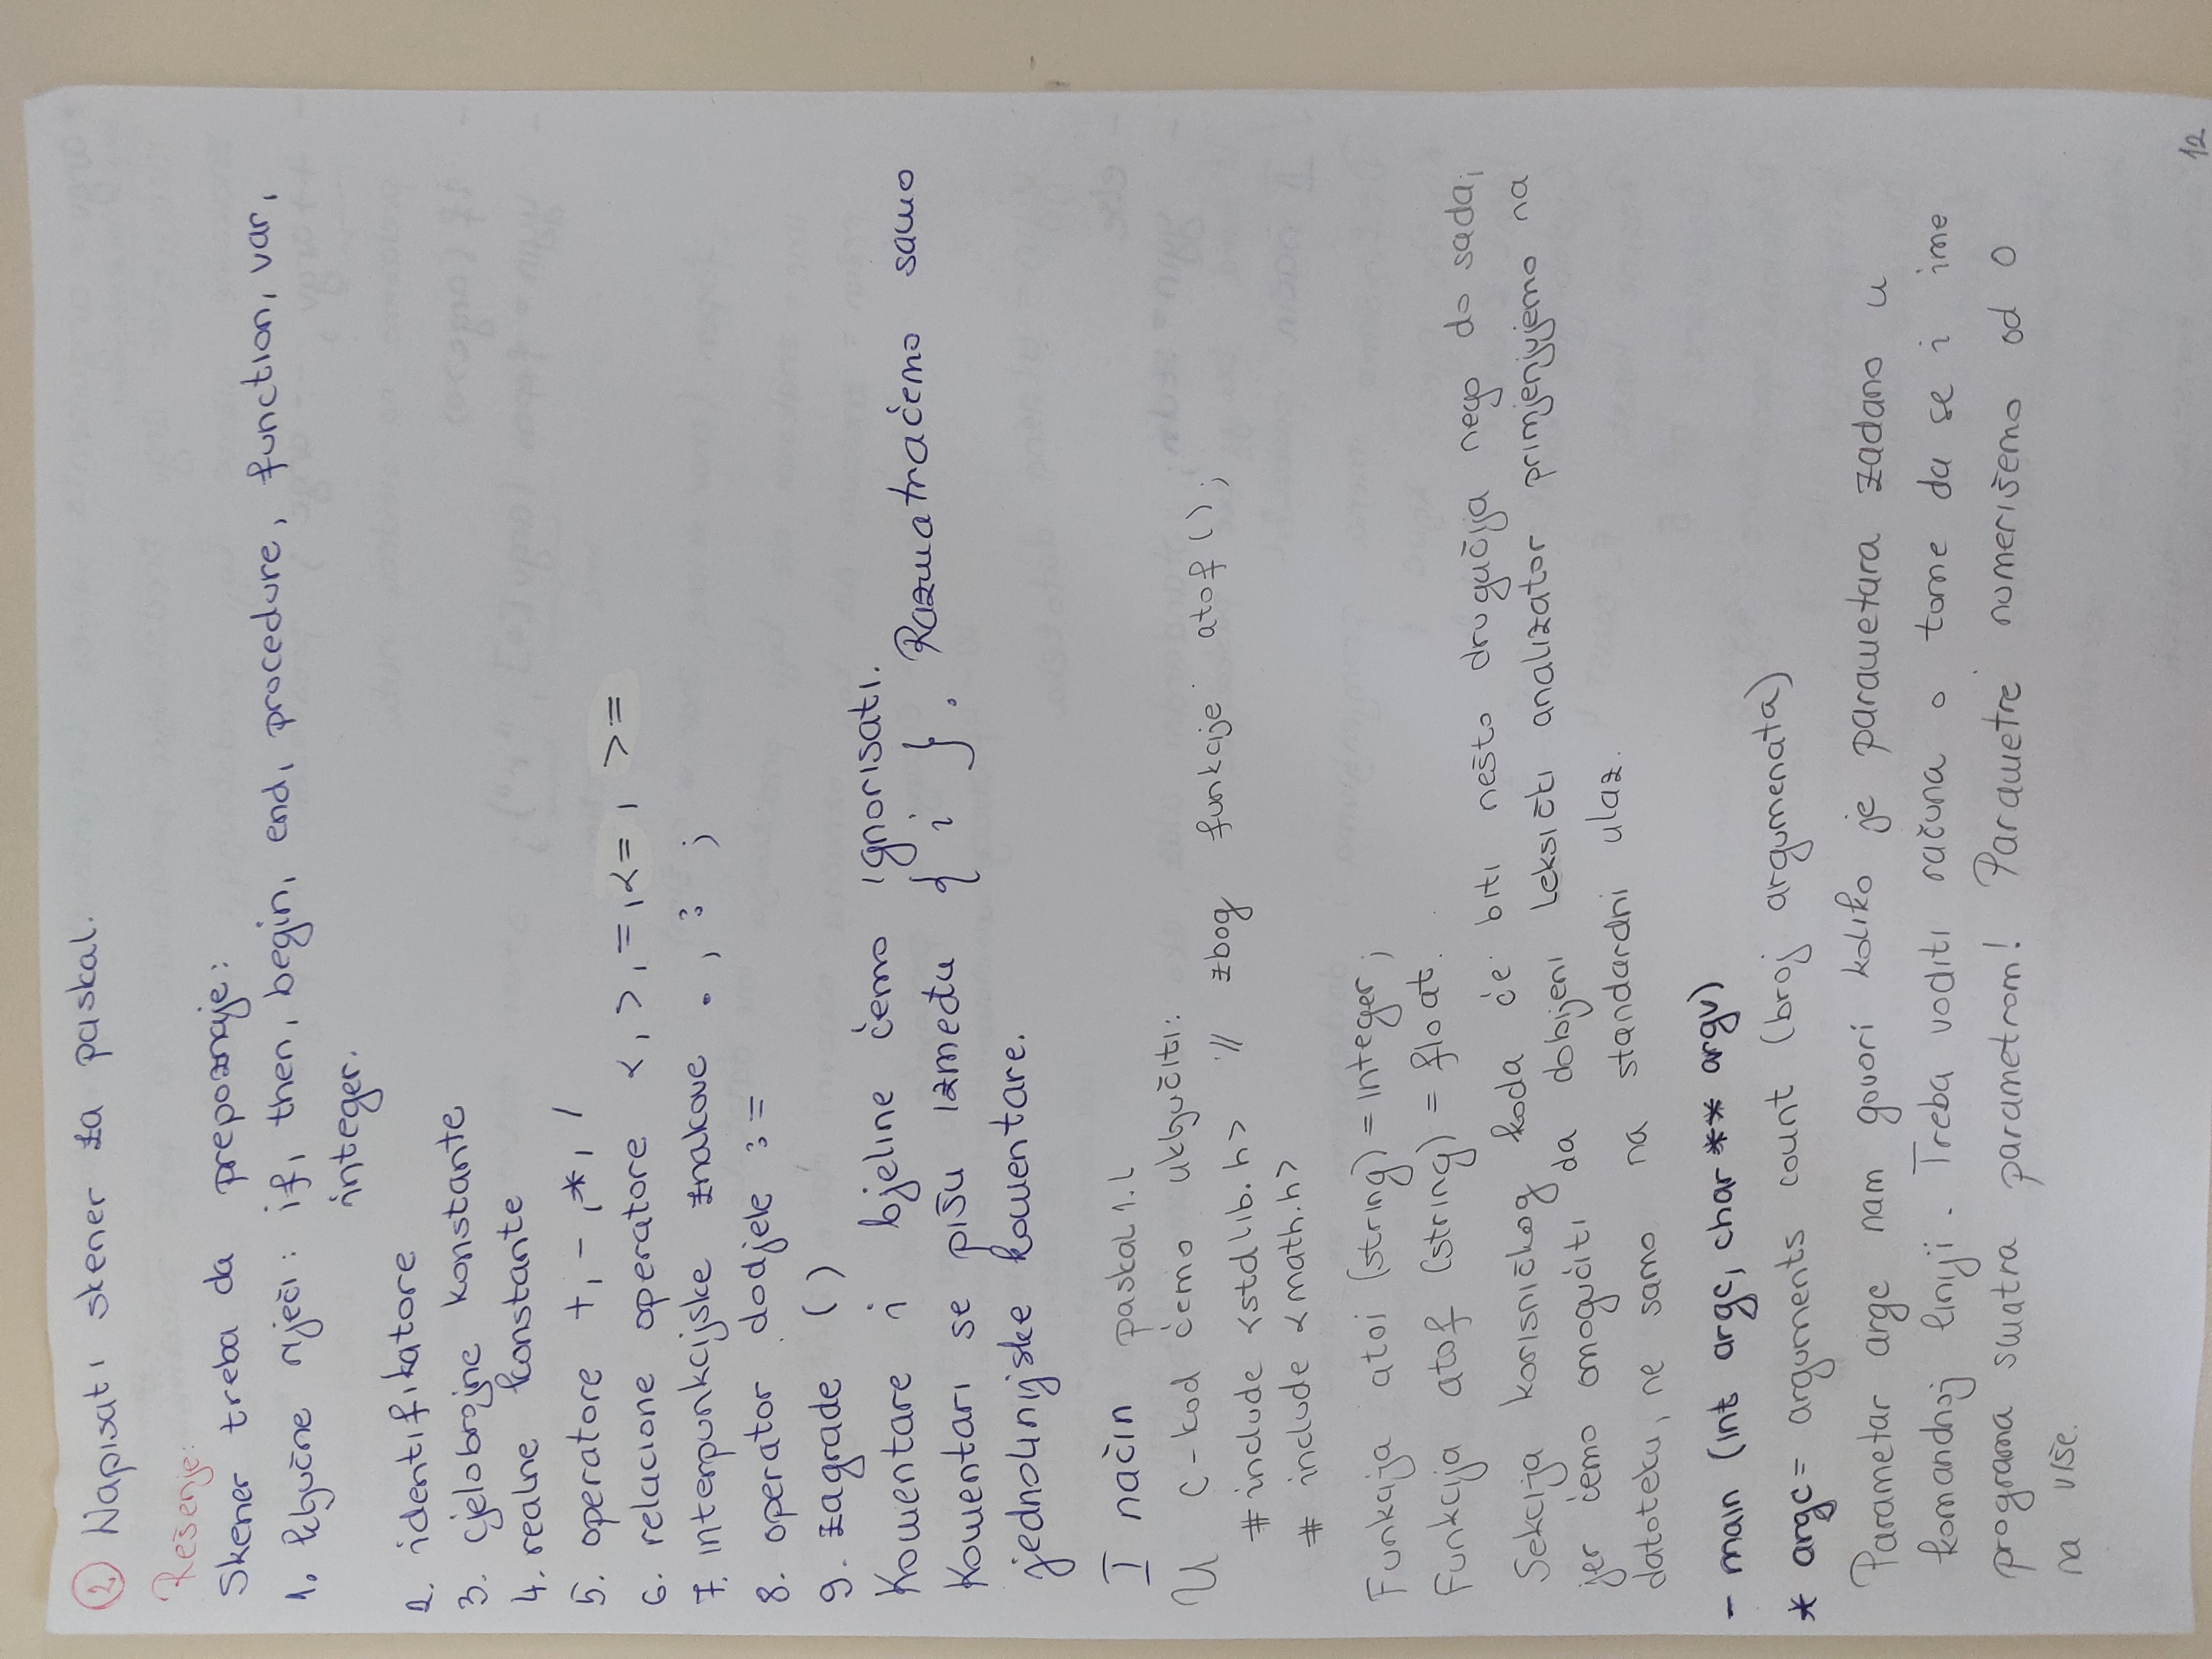 2 Napisati skener za paskal.
Rešenje:
Skener treba da prepoznaje:
1. ključne riječi: if, then, begin, end, procedure, function, var,
integer.
2. identifikatore
3. cjelobrojne konstante
4. realne konstante
5. operatore +, -, *, /
6. relacione operatore <, >, =, <=, >=
7. interpunkcijske znakove . , : ;
8. operator dodjele :=
9. zagrade ( )
Komentare i bjeline ćemo ignorisati.
Komentari se pišu između { i }. Razmatraćemo samo
jednolinijske komentare.
I način paskal1.l
U C-kod ćemo uključiti:
#include <stdlib.h> // zbog funkcije atof();
# include <math.h>
Funkcija atoi (string) = integer;
Funkcija atof (string) = float.
Sekcija korisničkog koda će biti nešto drugačija nego do sada,
jer ćemo omogućiti da dobijeni leksički analizator primjenjujemo na
datoteku, ne samo na standardni ulaz.
- main (int argc, char ** argv)
* argc = arguments count (broj argumenata)
Parametar argc nam govori koliko je parametara zadano u
komandnoj liniji. Treba voditi računa o tome da se i ime
programa smatra parametrom! Parametre numerišemo od 0
na više.
12